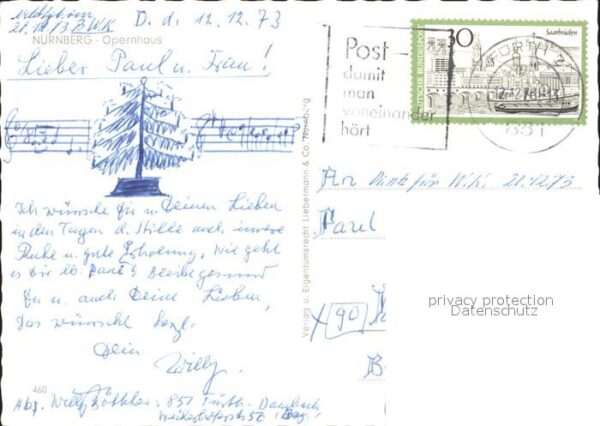 D. d. 12.12.73
21.12.73
NÜRNBERG - Opernhaus
Lieber Paul u. Frau!
30
Saarbrücken
DEUTSCHE BUNDESPOST
Post
damit
man
voneinander
hört
FÜRTH 2
851
Ich wünsche Dir u. Deinen Lieben
in den Tagen d. Stille auch innere
Ruhe u. gute Erholung. Wie geht
es Dir lb. Paul? Bleibe gesund
Du u. auch Deine Lieben,
das wünscht herzl.
Dein
Willy.
460
Abs. Willy 851 Fürth-Dambach
Verlag u. Eigentumsrecht Liebermann & Co. Nürnberg
An
21.12.73
Paul
90
privacy protection
Datenschutz